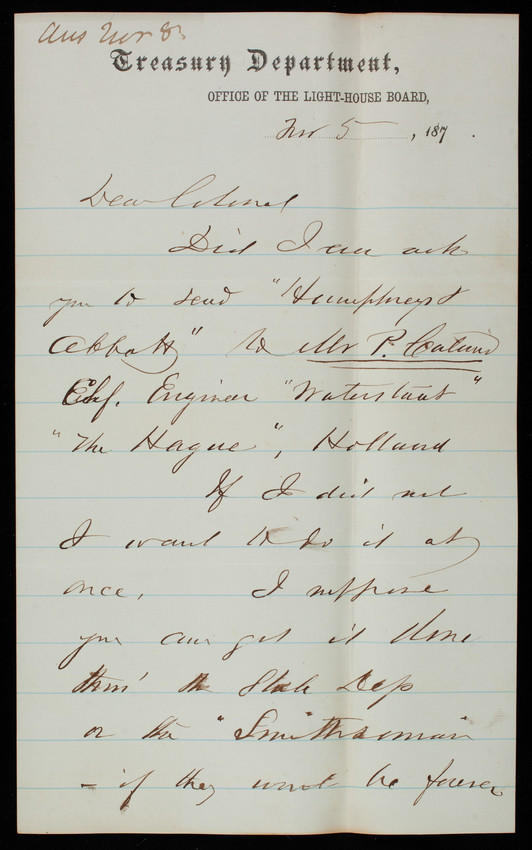 Ans Nov 8
Treasury Department,
OFFICE OF THE LIGHT-HOUSE BOARD,
Nov 5, 187 .
Dear Colonel
Did I ever ask
you to send "Humphreys &
Abbott" to Mr P. Caland
Chf. Engineer "Waterstaat"
"The Hague", Holland
If I did not
I want to do it at
once. I suppose
you can get it done
thro' the State Dep
or the "Smithsonian
- if they wont be forever